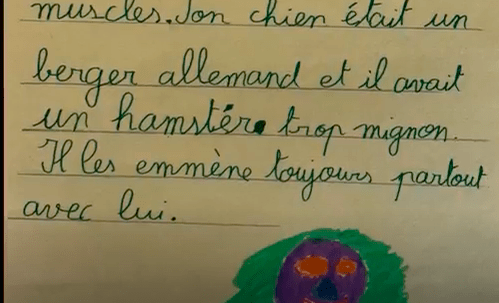 muscles. Son chien était un
berger allemand et il avait
un hamstér trop mignon.
Il les emmène toujours partout
avec lui.